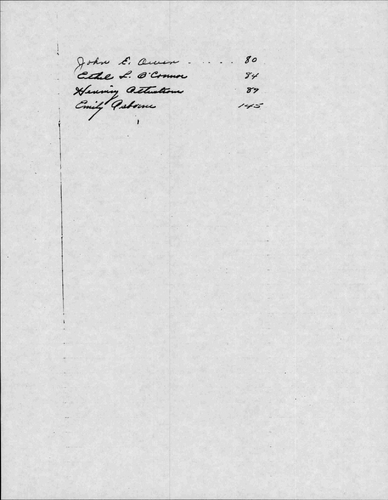 John E. Owen ..... 80
Ethel L. O'Connor 84
Henning 89
Emily Osborne 145